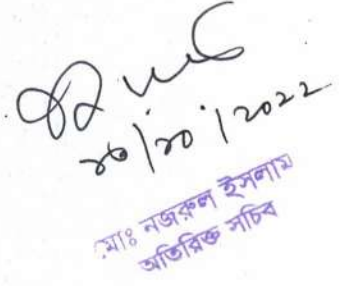 ১৩/১০/২০২২
মোঃ নজরুল ইসলাম
অতিরিক্ত সচিব